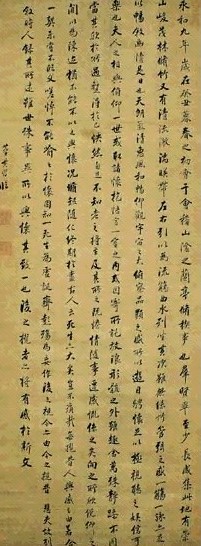 永和九年歲在癸丑暮春之初會于會稽山陰之蘭亭脩稧事也群賢畢至少長咸集此地有崇
山峻領茂林脩竹又有清流激湍暎帶左右引以為流觴曲水列坐其次雖無絲竹管弦之盛一觴一詠亦足
以暢敘幽情是日也天朗氣清惠風和暢仰觀宇宙之大俯察品類之盛所以遊目騁懷足以極視聽之娛信可
樂也夫人之相與俯仰一世或取諸懷抱悟言一室之內或因寄所託放浪形骸之外雖趣舍萬殊靜躁不同
當其欣於所遇暫得於己怏然自足不知老之將至及其所之既惓情隨事遷感慨係之矣向之所欣俛仰之
間以為陳迹猶不能不以之興懷況脩短隨化終期於盡古人云死生亦大矣豈不痛哉每攬昔人興感之由若合
一契未嘗不臨文嗟悼不能喻之於懷固知一死生為虛誕齊彭殤為妄作後之視今亦由今之視昔悲夫故列
敘時人錄其所述雖世殊事異所以興懷其致一也後之攬者亦將有感於斯文